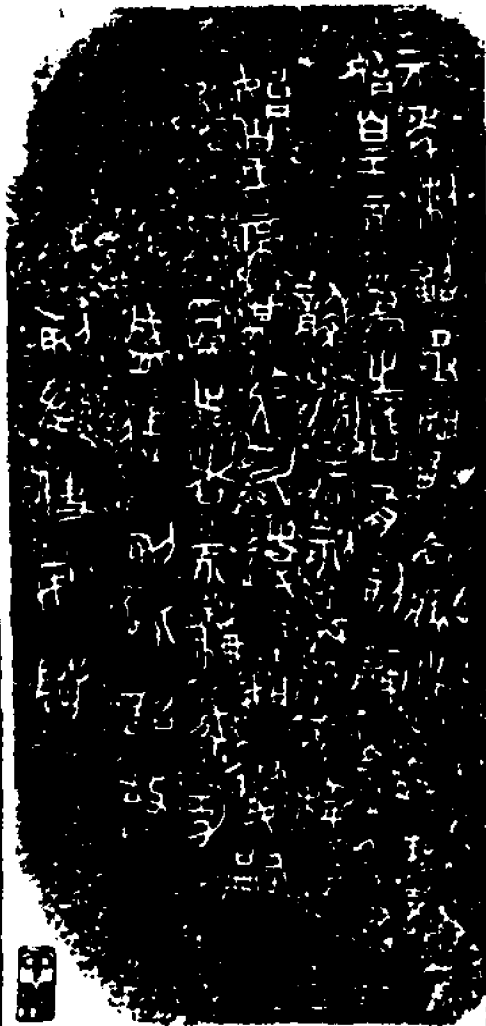 元年制詔丞相斯去疾灋度量盡
始皇帝爲之皆有刻辭焉今
襲號而刻辭不稱
始皇帝其於久遠也如後嗣
爲之者不稱成功
盛德刻此詔故
刻左使毋疑